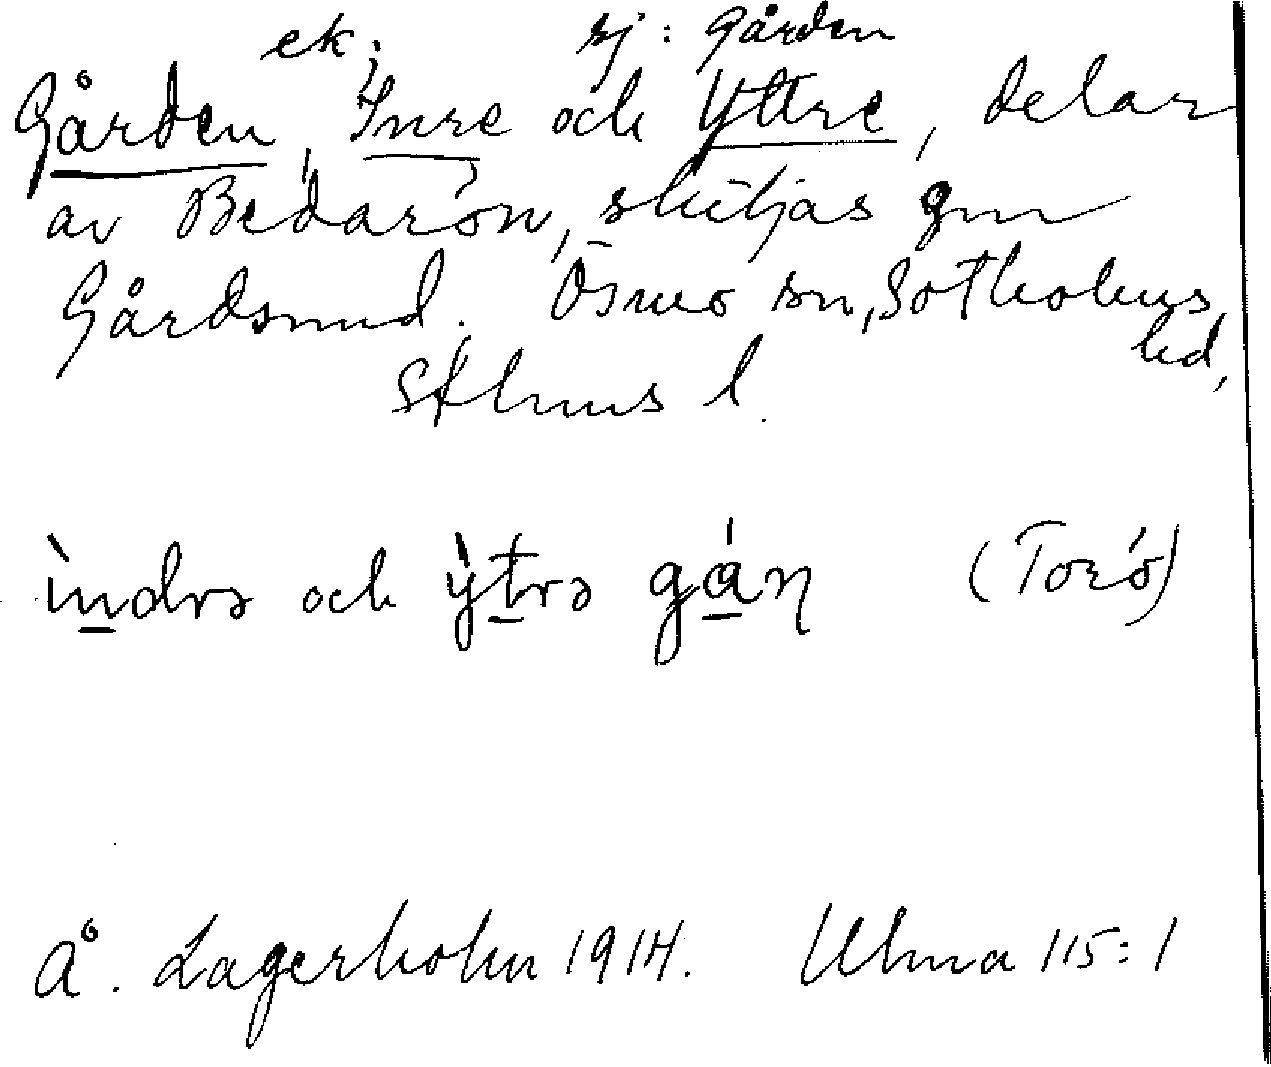 ek; sj: Gården
Gården, Inre och Yttre, delar
av Bedarön, skiljas gm
Gårdsund. Ösmo sn, Sotholms
hd,
Sthlms l.
ìndrə och ỳtrə gán (Torö)
Å. Lagerholm 1914. Ulma 115:1